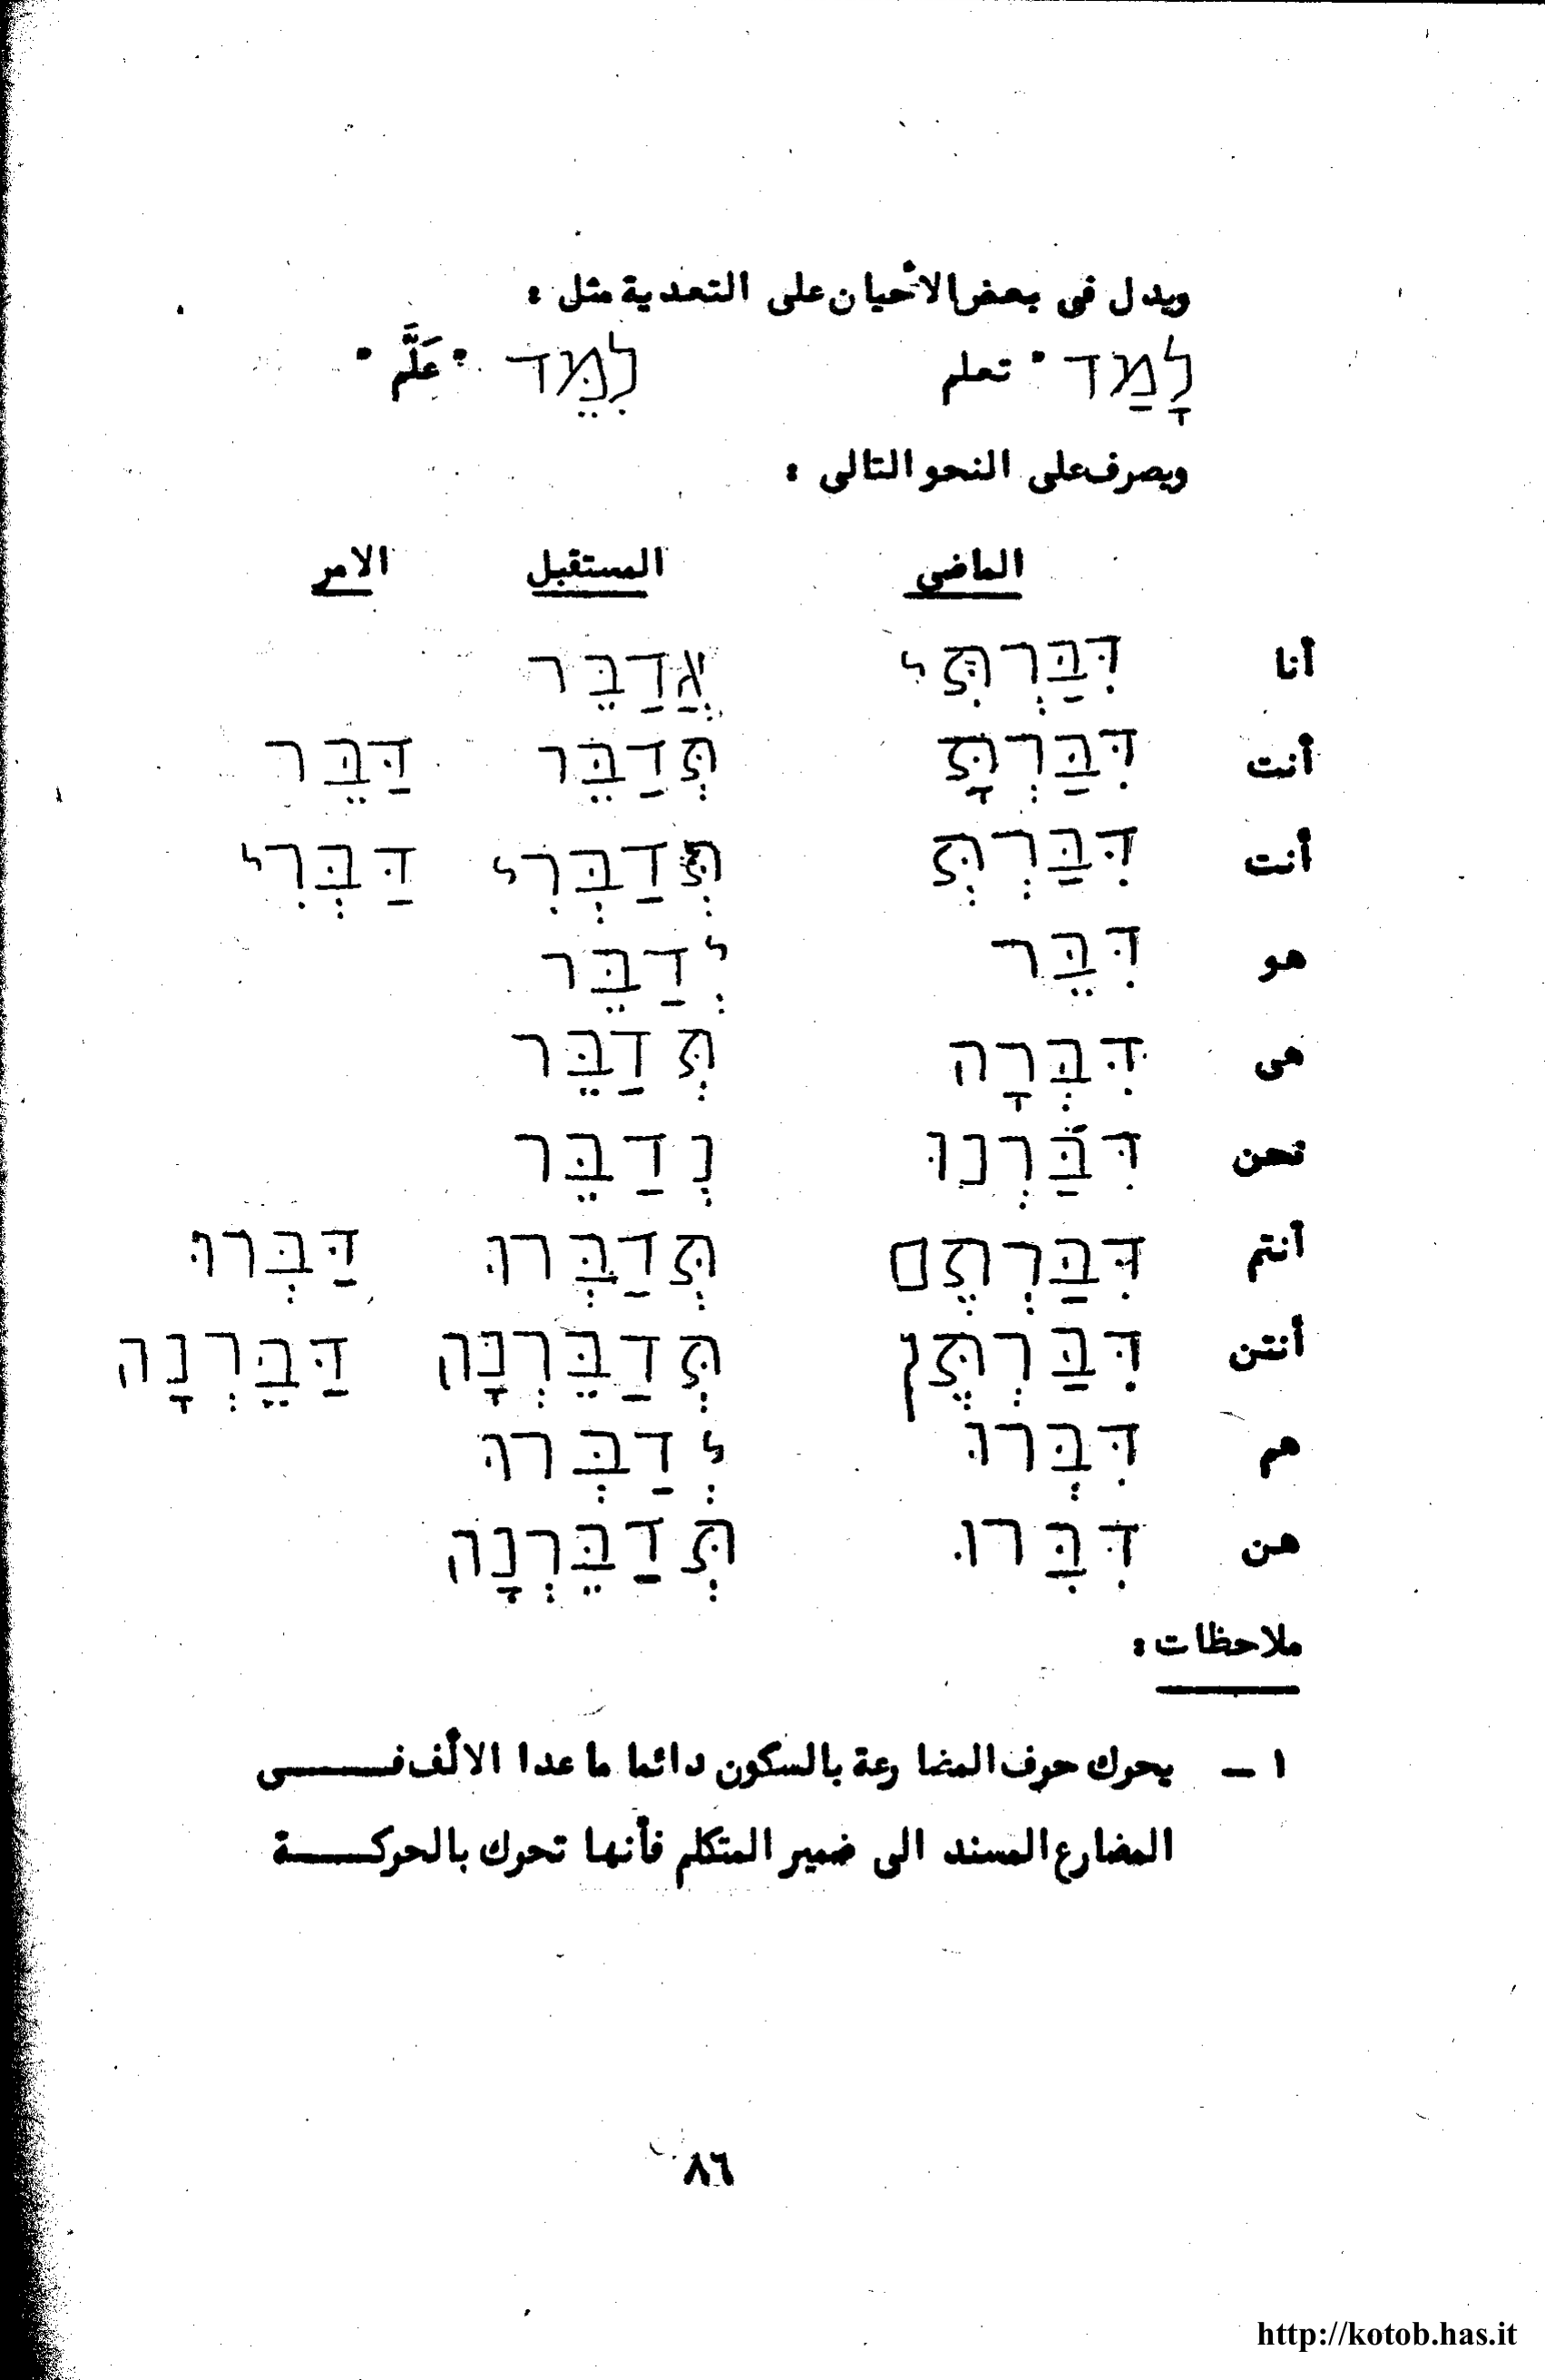 ويدل فى بعض الأحيان على التعدية مثل :
לָמַד " تعلم לִמֵּד " عَلَّم "
ويصرف على النحو التالى :
الماضى المستقبل الامر
أنا דִּבַּרְתִּי אֲדַבֵּר
أنت דִּבַּרְתָּ תְּדַבֵּר דַּבֵּר
أنت דִּבַּרְתְּ תְּדַבְּרִי דַּבְּרִי
هو דִּבֵּר יְדַבֵּר
هى דִּבְּרָה תְּדַבֵּר
نحن דִּבַּרְנוּ נְדַבֵּר
أنتم דִּבַּרְתֶם תְּדַבְּרוּ דַּבְּרוּ
أنتن דִּבַּרְתֶּן תְּדַבֵּרְנָה דַּבֵּרְנָה
هم דִּבְּרוּ יְדַבְּרוּ
هن דִּבְּרוּ תְּדַבֵּרְנָה
ملاحظات :
١ ـ يحرك حرف المضارعة بالسكون دائما ما عدا الألف فـــــى
المضارع المسند الى ضمير المتكلم فأنها تحرك بالحركــــة
٨٦
http://kotob.has.it